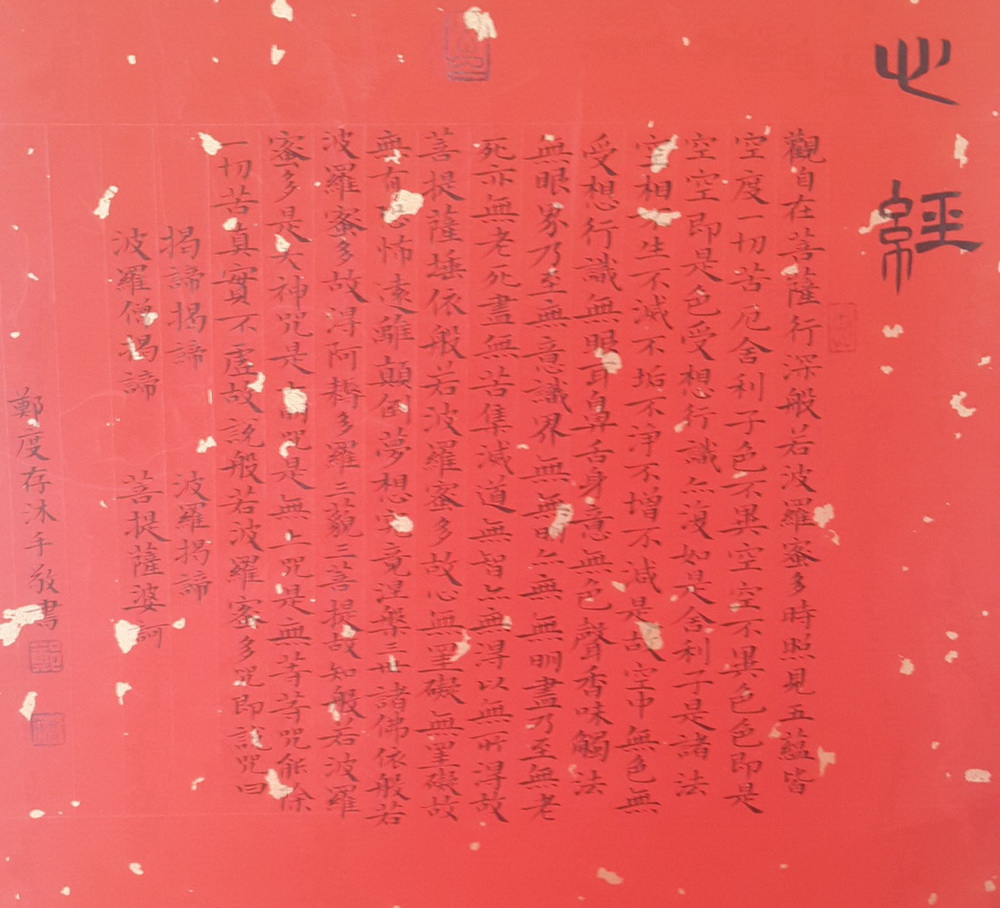 心經
觀自在菩薩行深般若波羅蜜多時照見五蘊皆
空度一切苦厄舍利子色不異空空不異色色即是
空空即是色受想行識亦復如是舍利子是諸法
空相不生不滅不垢不淨不增不減是故空中無色無
受想行識無眼耳鼻舌身意無色聲香味觸法
無眼界乃至無意識界無無明亦無無明盡乃至無老
死亦無老死盡無苦集滅道無智亦無得以無所得故
菩提薩埵依般若波羅蜜多故心無罣礙無罣礙故
無有恐怖遠離顛倒夢想究竟涅槃三世諸佛依般若
波羅蜜多故得阿耨多羅三藐三菩提故知般若波羅
蜜多是大神咒是大明咒是無上咒是無等等咒能除
一切苦真實不虛故說般若波羅蜜多咒即說咒曰
揭諦揭諦 波羅揭諦
波羅僧揭諦 菩提薩婆訶
鄭度存沐手敬書